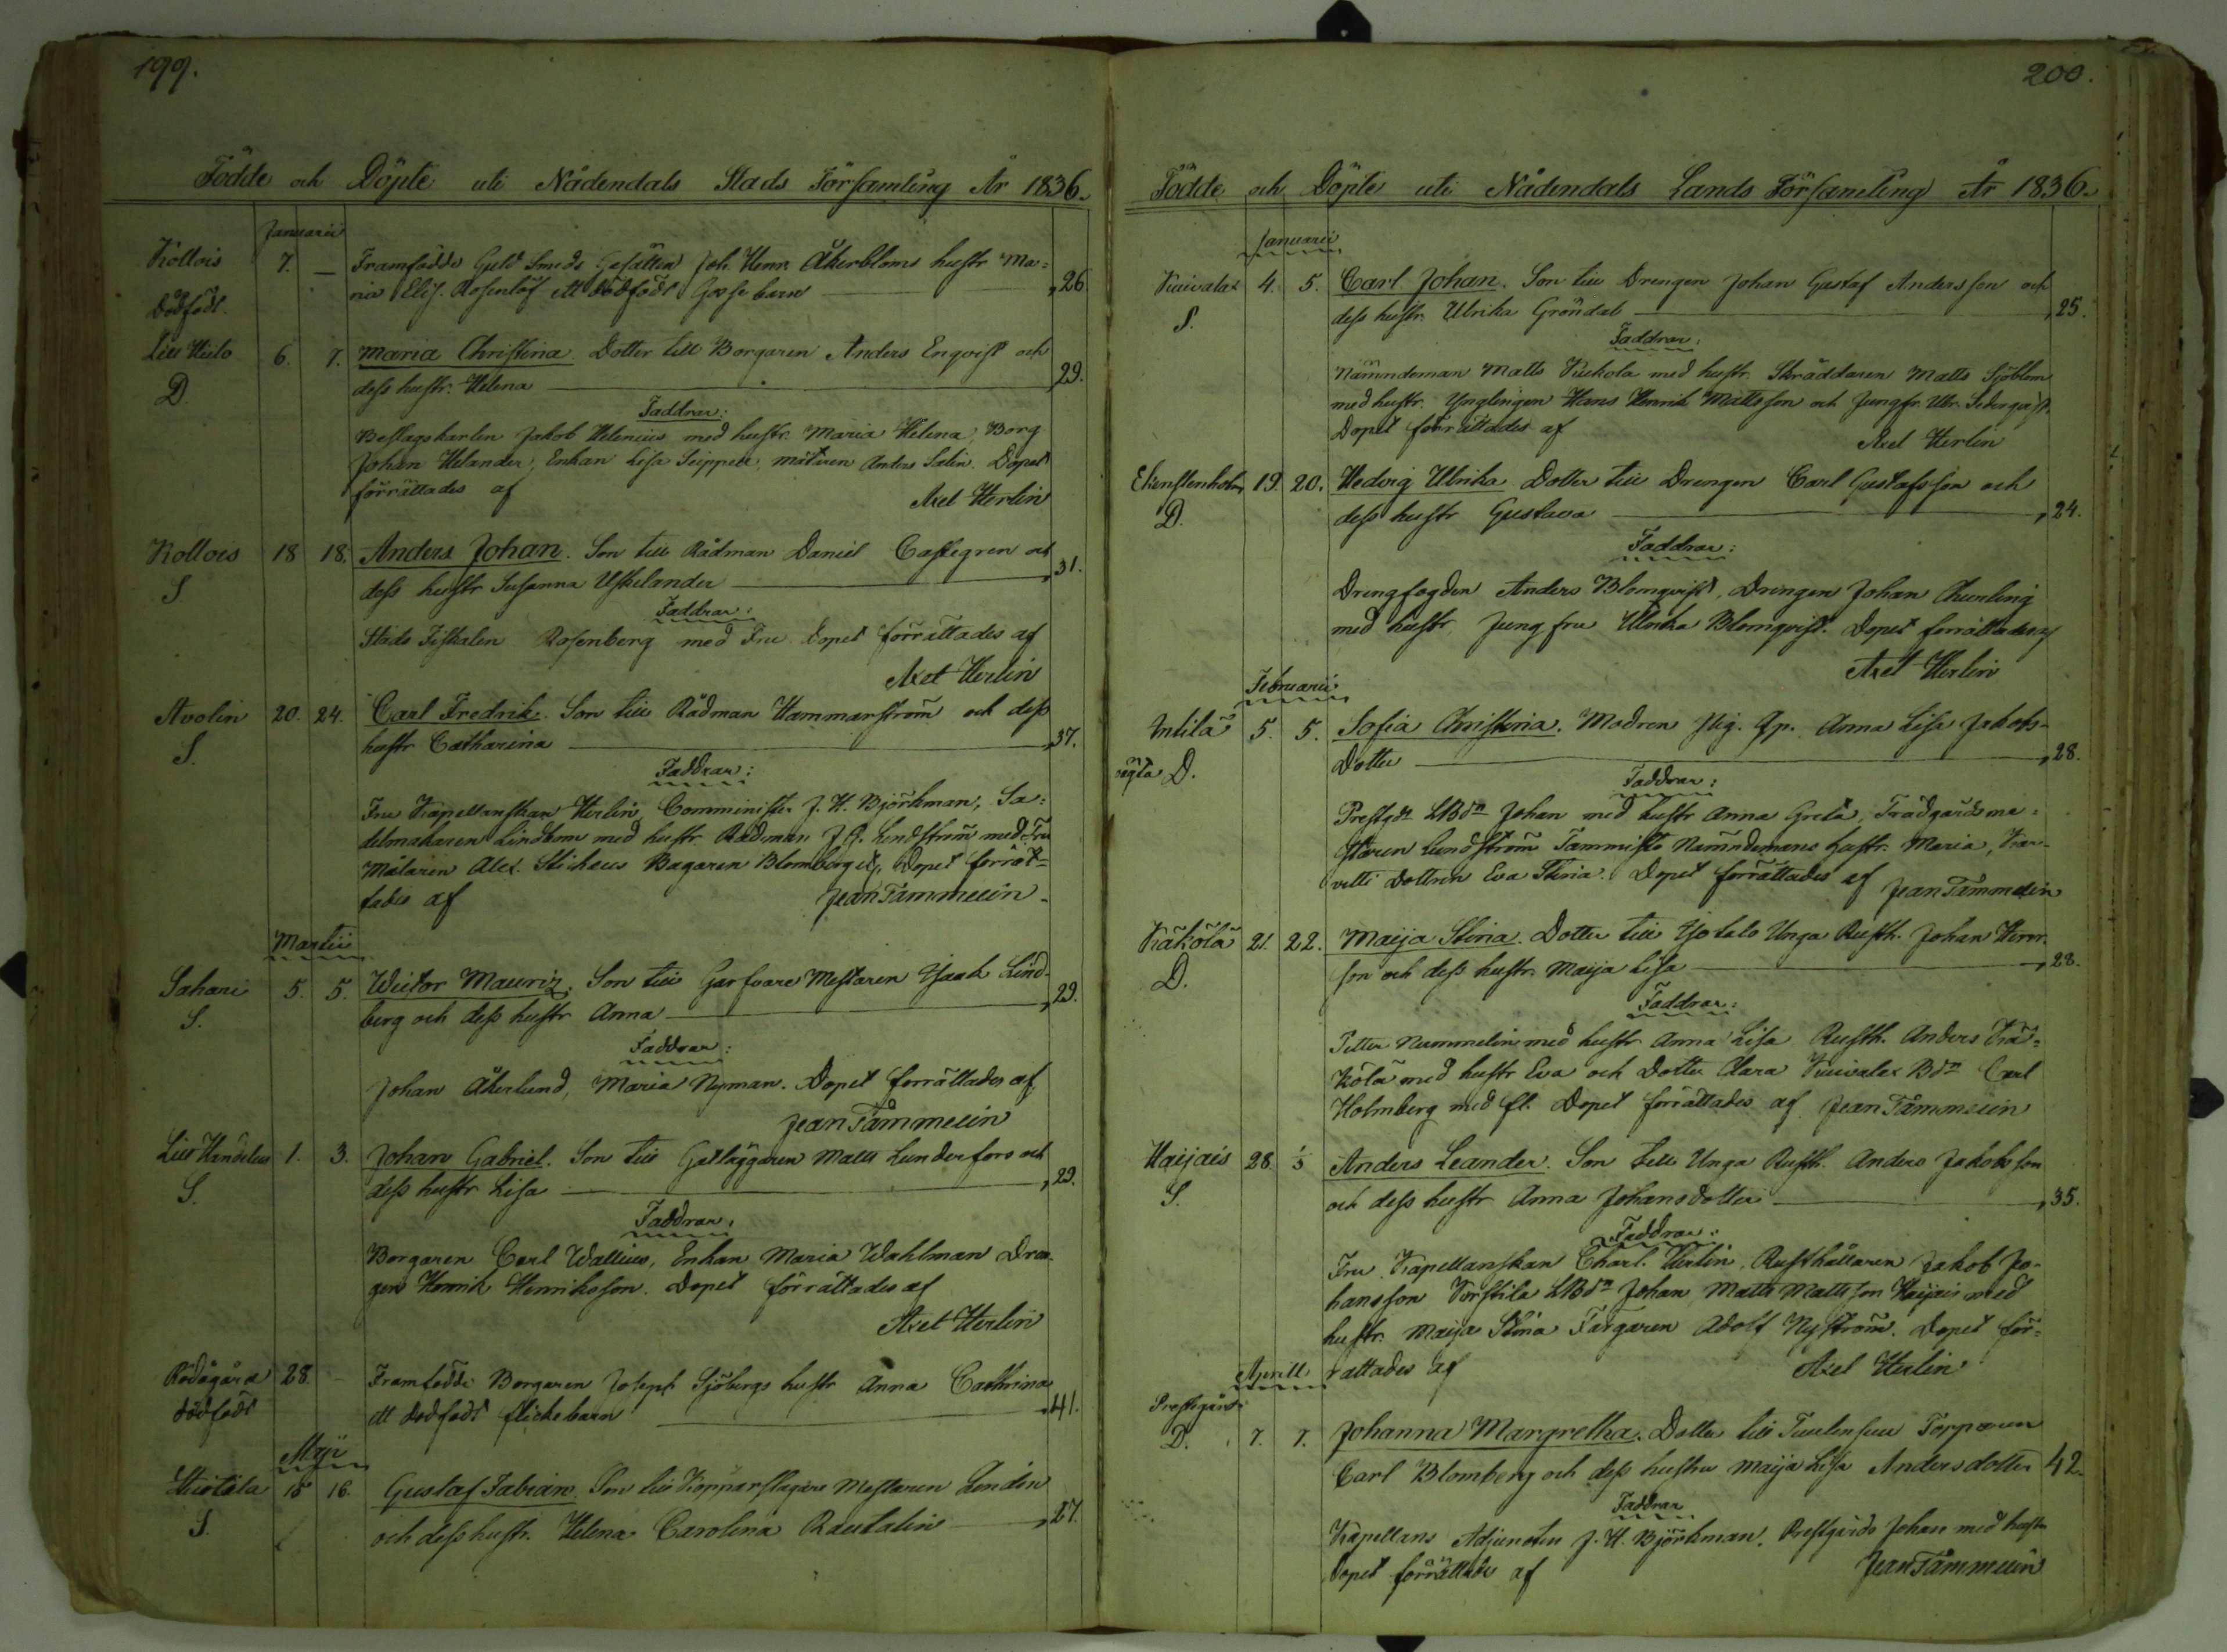 199.
Födde och Döpte uti Nådendals Stads Församling År 1836.
Januarii
Kollois 7. — Framfödde Guld Smeds Gesällen Joh. Henr. Åkerbloms hustr Ma=
Dödfödt. ria Elis. Rosenlöf ett dödfödt Gosse barn 26
Lill Hiilo 6. 7. Maria Christina. Dotter till Borgaren Anders Enqvist och
D. dess hustr. Helena 29.
Faddrar:
Beslagskarlen Jakob Helenius med hustr. Maria Helena, Borg
Johan Helander, Enkan Lisa Seippell, Anders Salin. Dopet
förrättades af Axel Herlin
Kollois 18 18. Anders Johan. Son till Rådman Daniel Castegren och
S dess hustr Susanna Uskelander 31.
Faddrar:
Stads Fiskalen Rosenberg med Fru. Dopet förrättades af
Axel Herlin
Avolin 20. 24. Carl Fredrik. Son till Rådman Hammarström och dess
S. hustr Catharina 37.
Faddrar:
Fru Kapellanskan Herlin, Comminister J. H. Björkman, Sa=
delmakaren Lindbom med hustr. Rådman J. G. Lindström med Fru
Målaren Alex. Bagaren Blomberg etc. Dopet förrät=
tades af Jean Tammelin.
Martii
Sahari 5. 5. Wictor Mauriz. Son till Garfvare Mestaren Isaak Lind
S. berg och dess hustr Anna 29.
Faddrar:
Johan Åkerlund, Maria Nyman. Dopet förrättades af
Jean Tammelin
Lill 1. 3. Johan Gabriel. Son till Gatläggaren Matts Lunderfors och
S. dess hustr Lisa 29.
Faddrar.
Borgaren Carl Wallius, Enkan Maria Wahlman Dren
gen Henrik Henriksson. Dopet förrättades af
Axel Herlin
28. Framfödde Borgaren Joseph Sjöbergs hustr Anna Cathrina
dödfödt ett dödfödt flickebarn 41.
Maji
Hiotala 15 16. Gustaf Fabian. Son till Kopparslagare Mestaren Lindin
S. och dess hustr. Helena Carolina Rautalin 27.
200.
Födde och Döpte uti Nådendals Lands Församling År 1836.
Januarii
Kuivalax 4. 5. Carl Johan. Son till Drengen Johan Gustaf Andersson och
S. dess hustr. Ulrika Gröndal 25.
Faddrar:
Nämndeman Matts Viuhola med hustr. Skräddaren Matts Sjöblom
med hustr. Ynglingen Hans Henrik Mattsson och Jungfr. Ulr. Sederqvist.
Dopet förrättades af Axel Herlin
Ekenstensholm 19. 20. Hedvig Ulrika. Dotter till Drengen Carl Gustafsson och
D. dess hustr Gustava 24.
Faddrar:
Drengfogden Anders Blomqvist, Drengen Johan
med hustr. Jungfru Ulrika Blomqvist. Dopet förrättades af
Axel Herlin
Februarii
Intilä 5. 5. Sofia Christina. Modren Pig. Qp. Anna Lisa Jakobs=
oägta D. Dotter 28.
Faddrar:
Prestgds LBdn Johan med hustr Anna Greta, Trädgårdsme=
staren Lundström Tammisto Nämndemans hustr. Maria, Kar=
vetti Dottren Eva Stina. Dopet förrättades af Jean Tammelin
Käkölä 21. 22. Maija Stina. Dotter till Isotalo Unga Rusth. Johan Henr.
D. son och dess hustr. Maija Lisa 28.
Faddrar:
Petter Nummelin med hustr Anna Lisa Rusth. Anders Kä=
kölä med hustr Eva och Dotter Clara Kuivalax Bdn Carl
Holmberg med fl. Dopet förrättades af Jean Tammelin
Haijais 28. Anders Leander. Son till Unga Rusth. Anders Jakobsson
S. och dess hustr Anna Johansdotter 35.
Faddrar:
Fru Kapellanskan Charl. Herlin, Rusthållaren Jakob Jo=
hansson LBdn Johan Matts Mattsson Haijais med
hustr. Maija Stina Färgaren Adolf Nyström. Dopet för=
rättades af Axel Herlin
Aprill
Prestgård
D. 7. 7. Johanna Margretha. Dotter till Torparen
Carl Blomberg och dess hustru Maija Lisa Andersdotter 42.
Faddrar
Kapellans Adjuncten J. H. Björkman, Prestgårds Johan med hustr
Dopet förrättades af Jean Tammelin